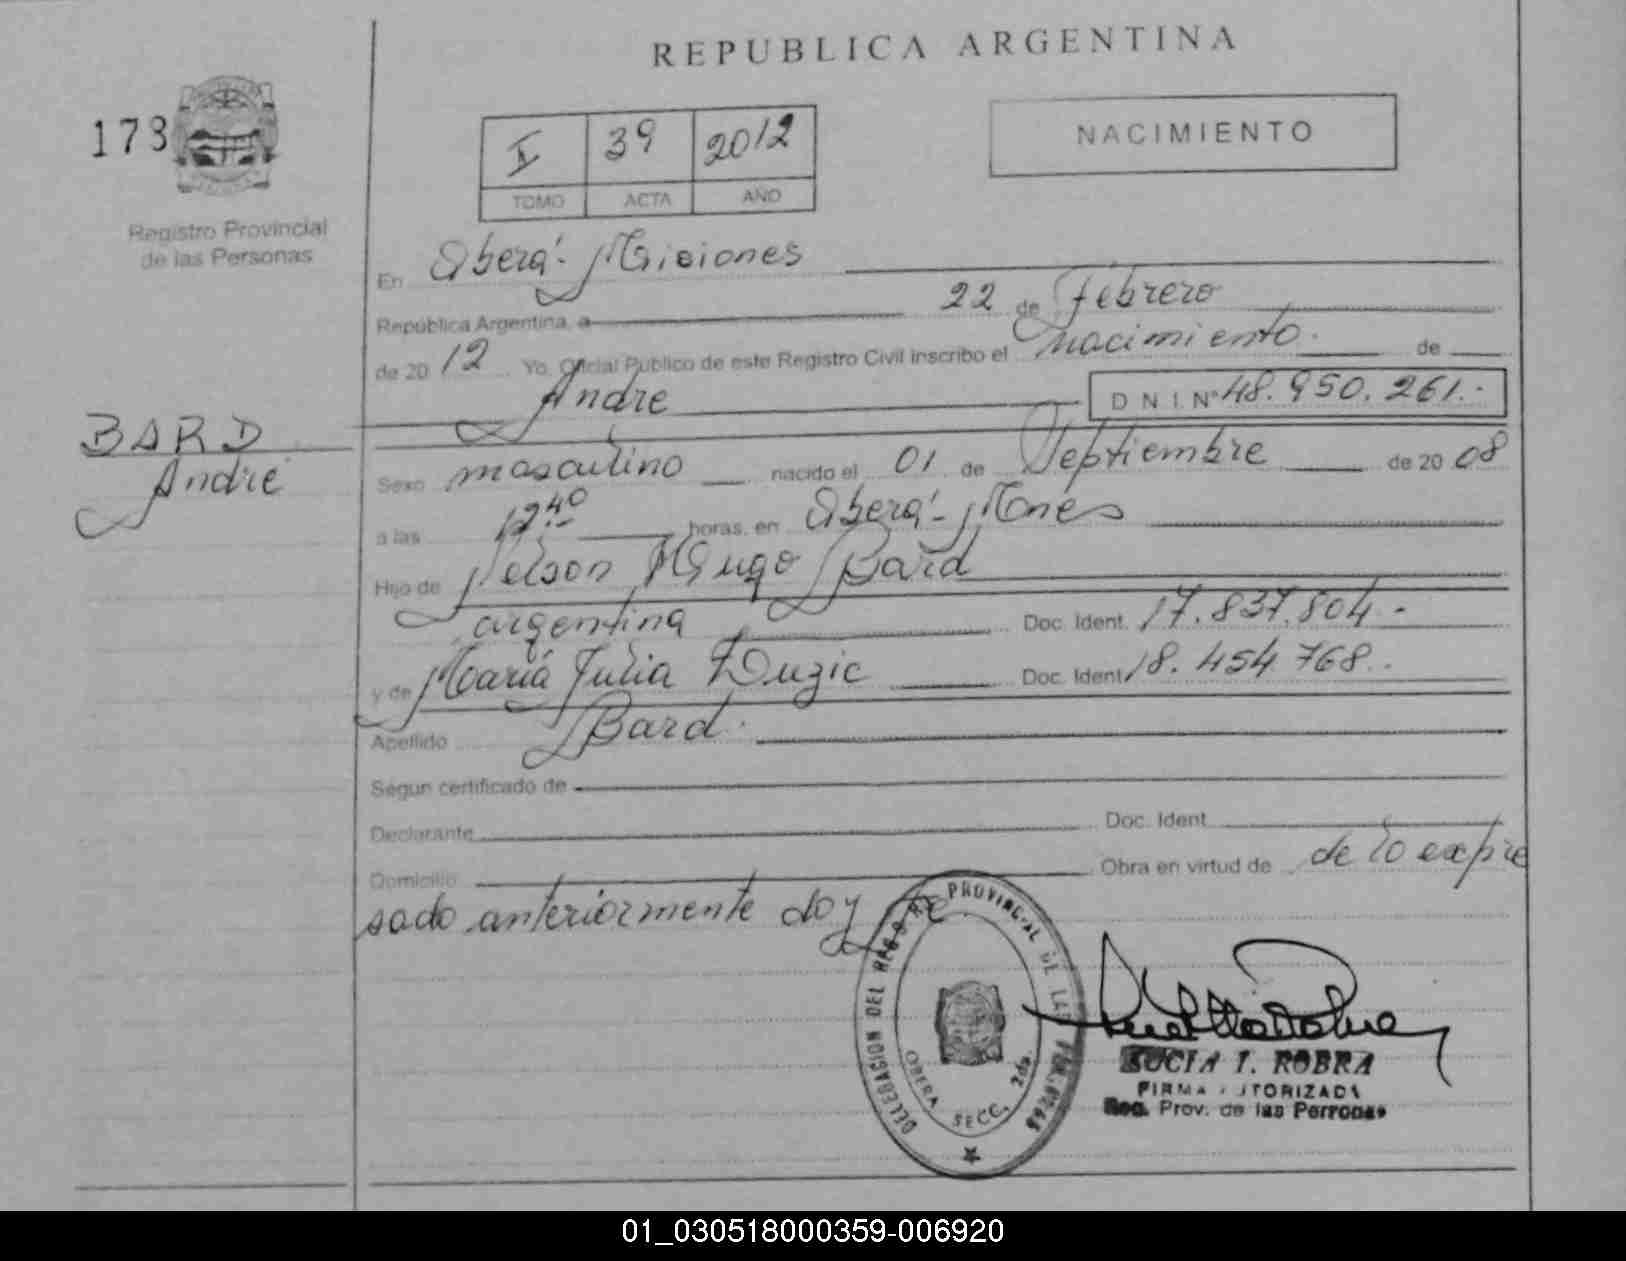 REPUBLICA ARGENTINA
173
I 39 2012
TOMO ACTA AÑO
NACIMIENTO
Registro Provincial
de las Personas
En Oberá - Misiones
República Argentina, a 22 de Febrero
de 2012 Yo, Oficial Público de este Registro Civil inscribo el nacimiento. de
Andre D N I. Nº 48.950.261.-
BARD
André
Sexo masculino nacido el 01 de Septiembre de 2008
a las 12:40 horas, en Oberá - Mnes
Hijo de Nelson Hugo Bard
argentina Doc. Ident. 17.837.804.-
y de María Julia Duzic Doc. Ident. 18.454.768.
Apellido Bard.
Según certificado de
Declarante Doc. Ident.
Domicilio Obra en virtud de de lo expre
sado anteriormente doy fe.
DELEGACION DEL REG PROVINCIAL DE LAS PERSONAS
OBERA SECC. 2da.
LUCIA I. ROBRA
FIRMA AUTORIZADA
Reg. Prov. de las Personas
01_030518000359-006920